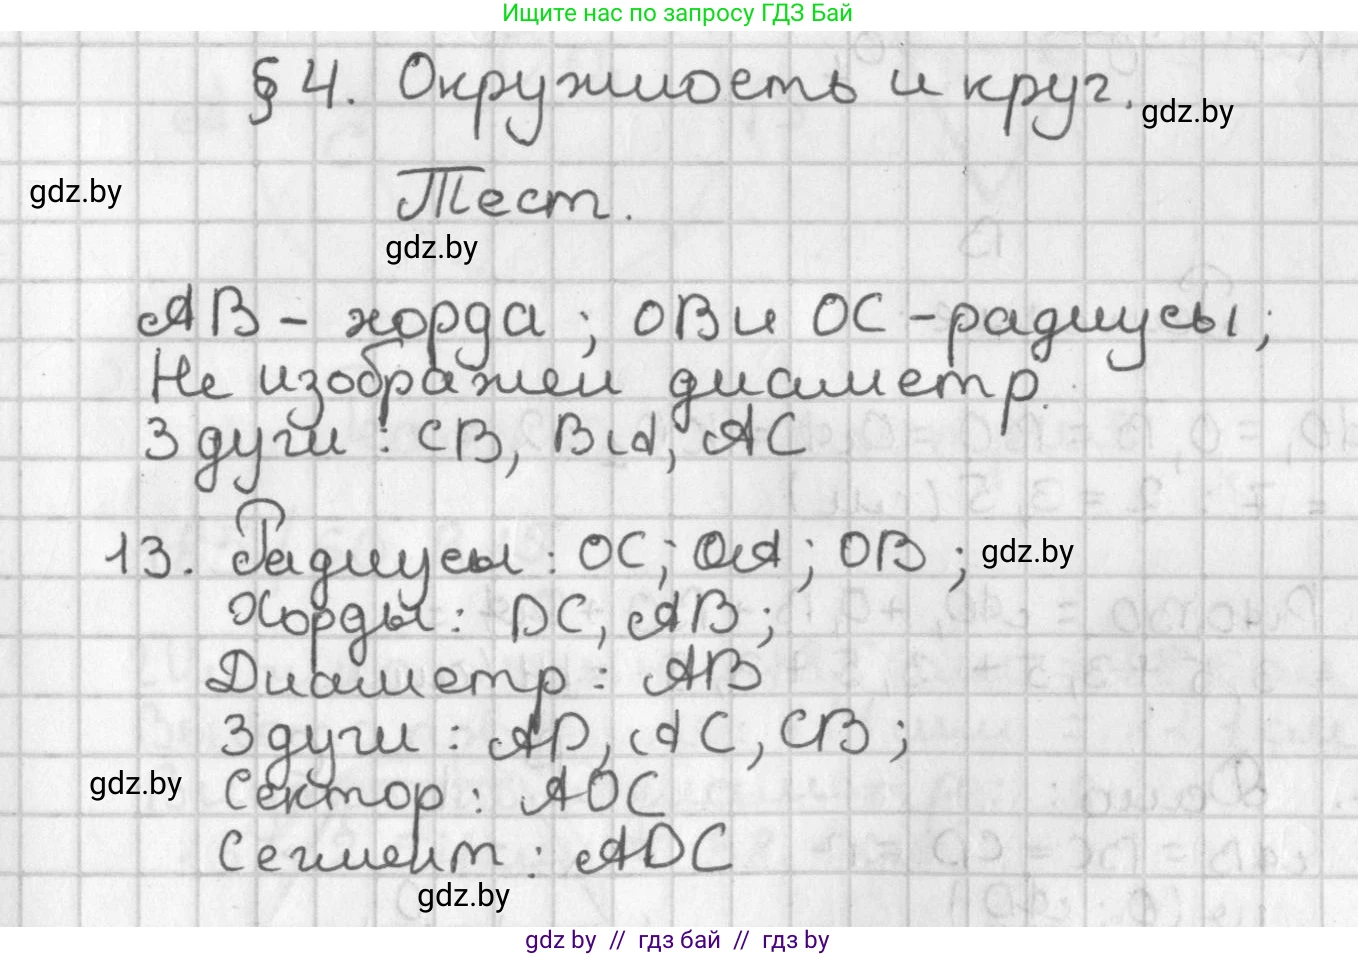 Ищите нас по запросу ГДЗ Бай
§4. Окружность и круг.
gdz.by
gdz.by
Тест.
gdz.by
AB - хорда; OB и OC - радиусы;
Не изображен диаметр.
3 дуги: CB, BA, AC
13. Радиусы: OC; OA; OB;
gdz.by
Хорды: DC, AB;
Диаметр: AB
3 дуги: AD, AC, CB;
gdz.by
Сектор: AOC
Сегмент: ADC
gdz.by
gdz by // гдз бай // гдз by